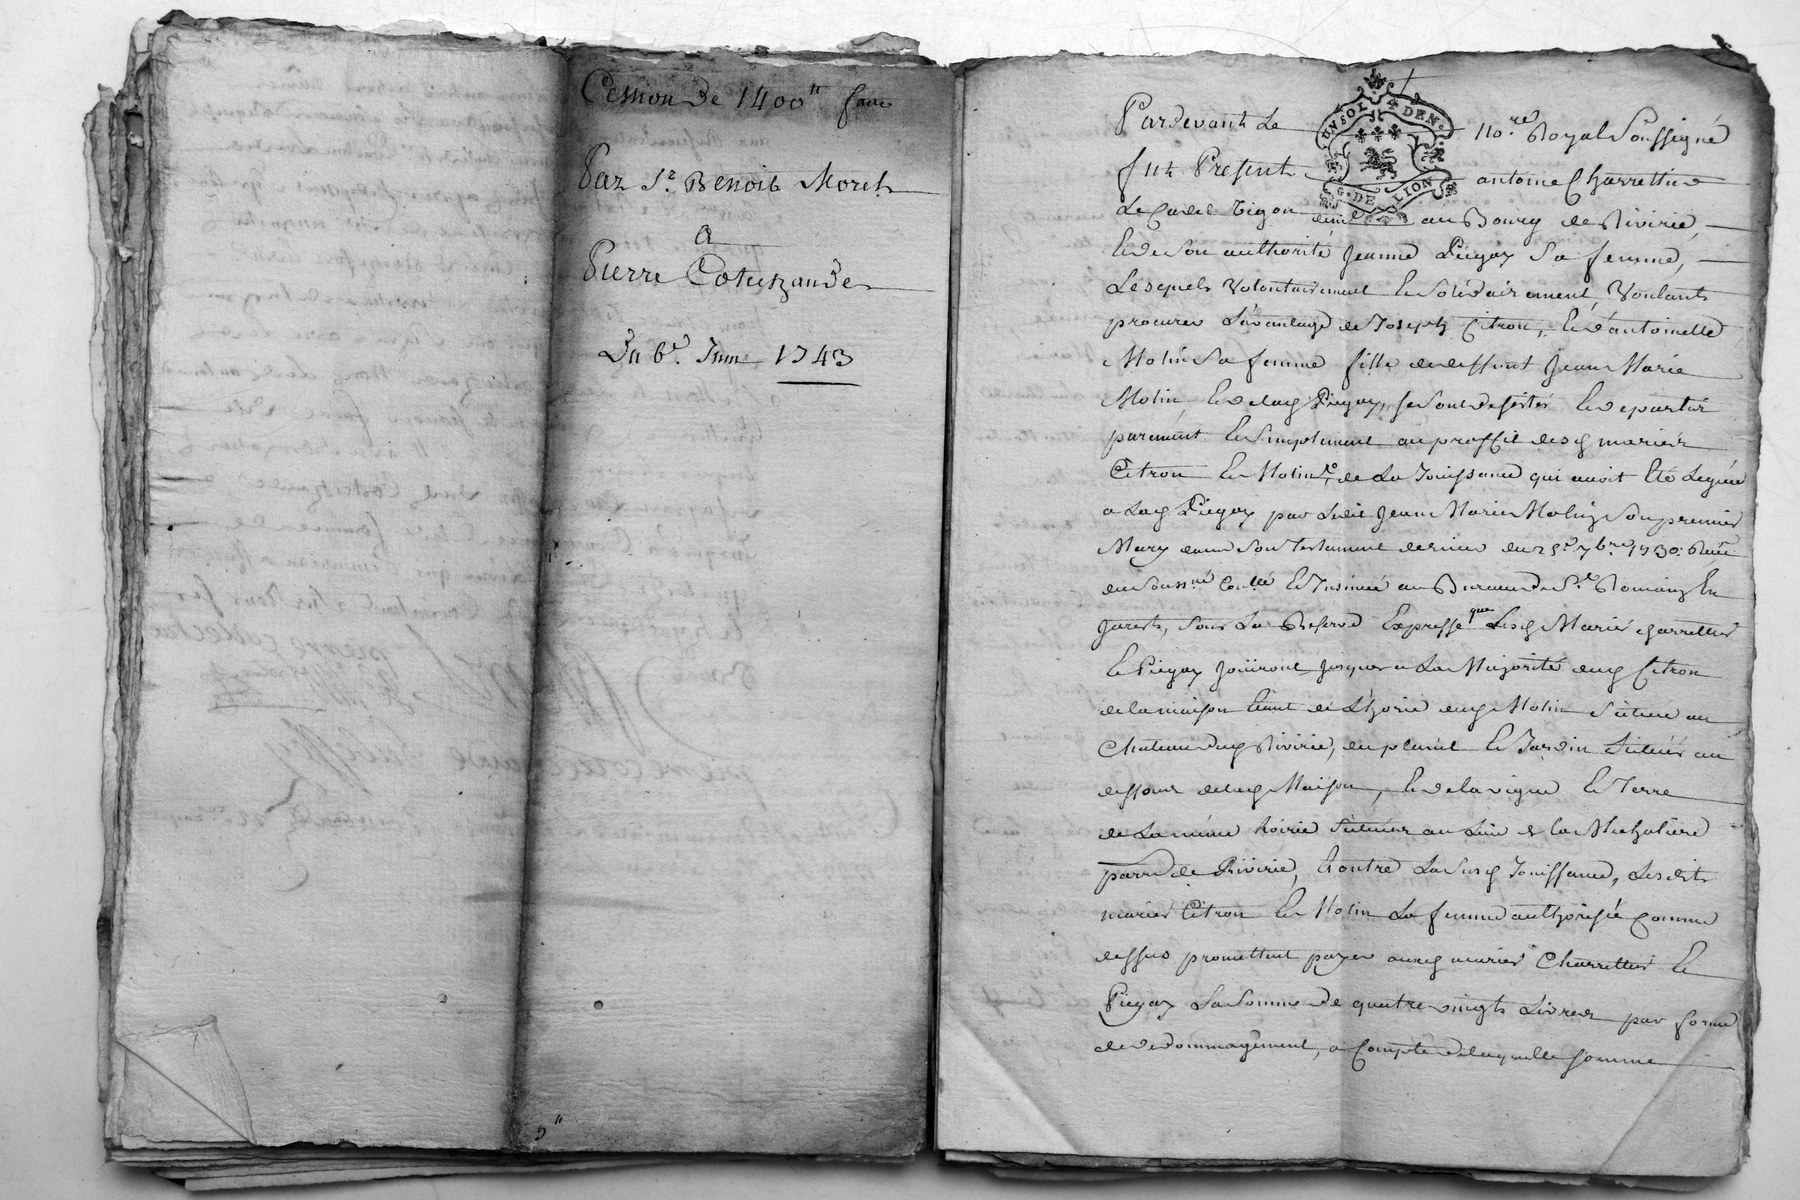 Cession de 1400 ᵗᵗ faitte
Par Sr. Benoit Morel
a
Pierre Coturzande
Du 6e. Juin 1743
9
UN SOL 4 DEN.
G. DE LION
Pardevant Le no.re Royal Soussigné
fut Present antoine Charrettier
au Bourg de Rivirie,
Et de Son authorité Jeanne Piegay Sa femme,
Lesquels Volontairement et Solidairement, Voulants
procurer L'avantage de Joseph Citron, Et d'antoinette
Molin Sa femme fille de deffunt Jean Marie
Molin Et de lad Piegay, Se Sont desistés Et departis
purement Et Simplement au proffit desd mariés
Citron Et Molin, de La Jouissance qui avoit Eté Leguée
a Lad Piegay par Ledit Jean Marie Molin Son premier
Mary dans Son Testament dernier du 25e 7bre 1730. Receu
du Souss.né Con.llé Et Insinué au Bureau de St. Romain En
Jarests, Sous La Reserve Expresse que Lesd Mariés charrettier
Et Piegay Joüiront Jusques a La Majorité dud Citron
de la maison Etant de L'horie dud Molin Scituée au
Chateau dud Rivirie, du plassit Et Jardin Scitués au
dessous delad Maison, Et de la vigne Et Terre
de La méme hoirie Scituées au Lieu de la Michalière
parr.e de Rivirie, Contre La Susd Jouissance, Lesdits
mariés Citron Et Molin La femme authorisée Comme
dessus promettent payer auxd mariés Charrettier Et
Piegay La Somme de quatre vingts Livres par forme
de dedommagement, a Compte de laquelle Somme